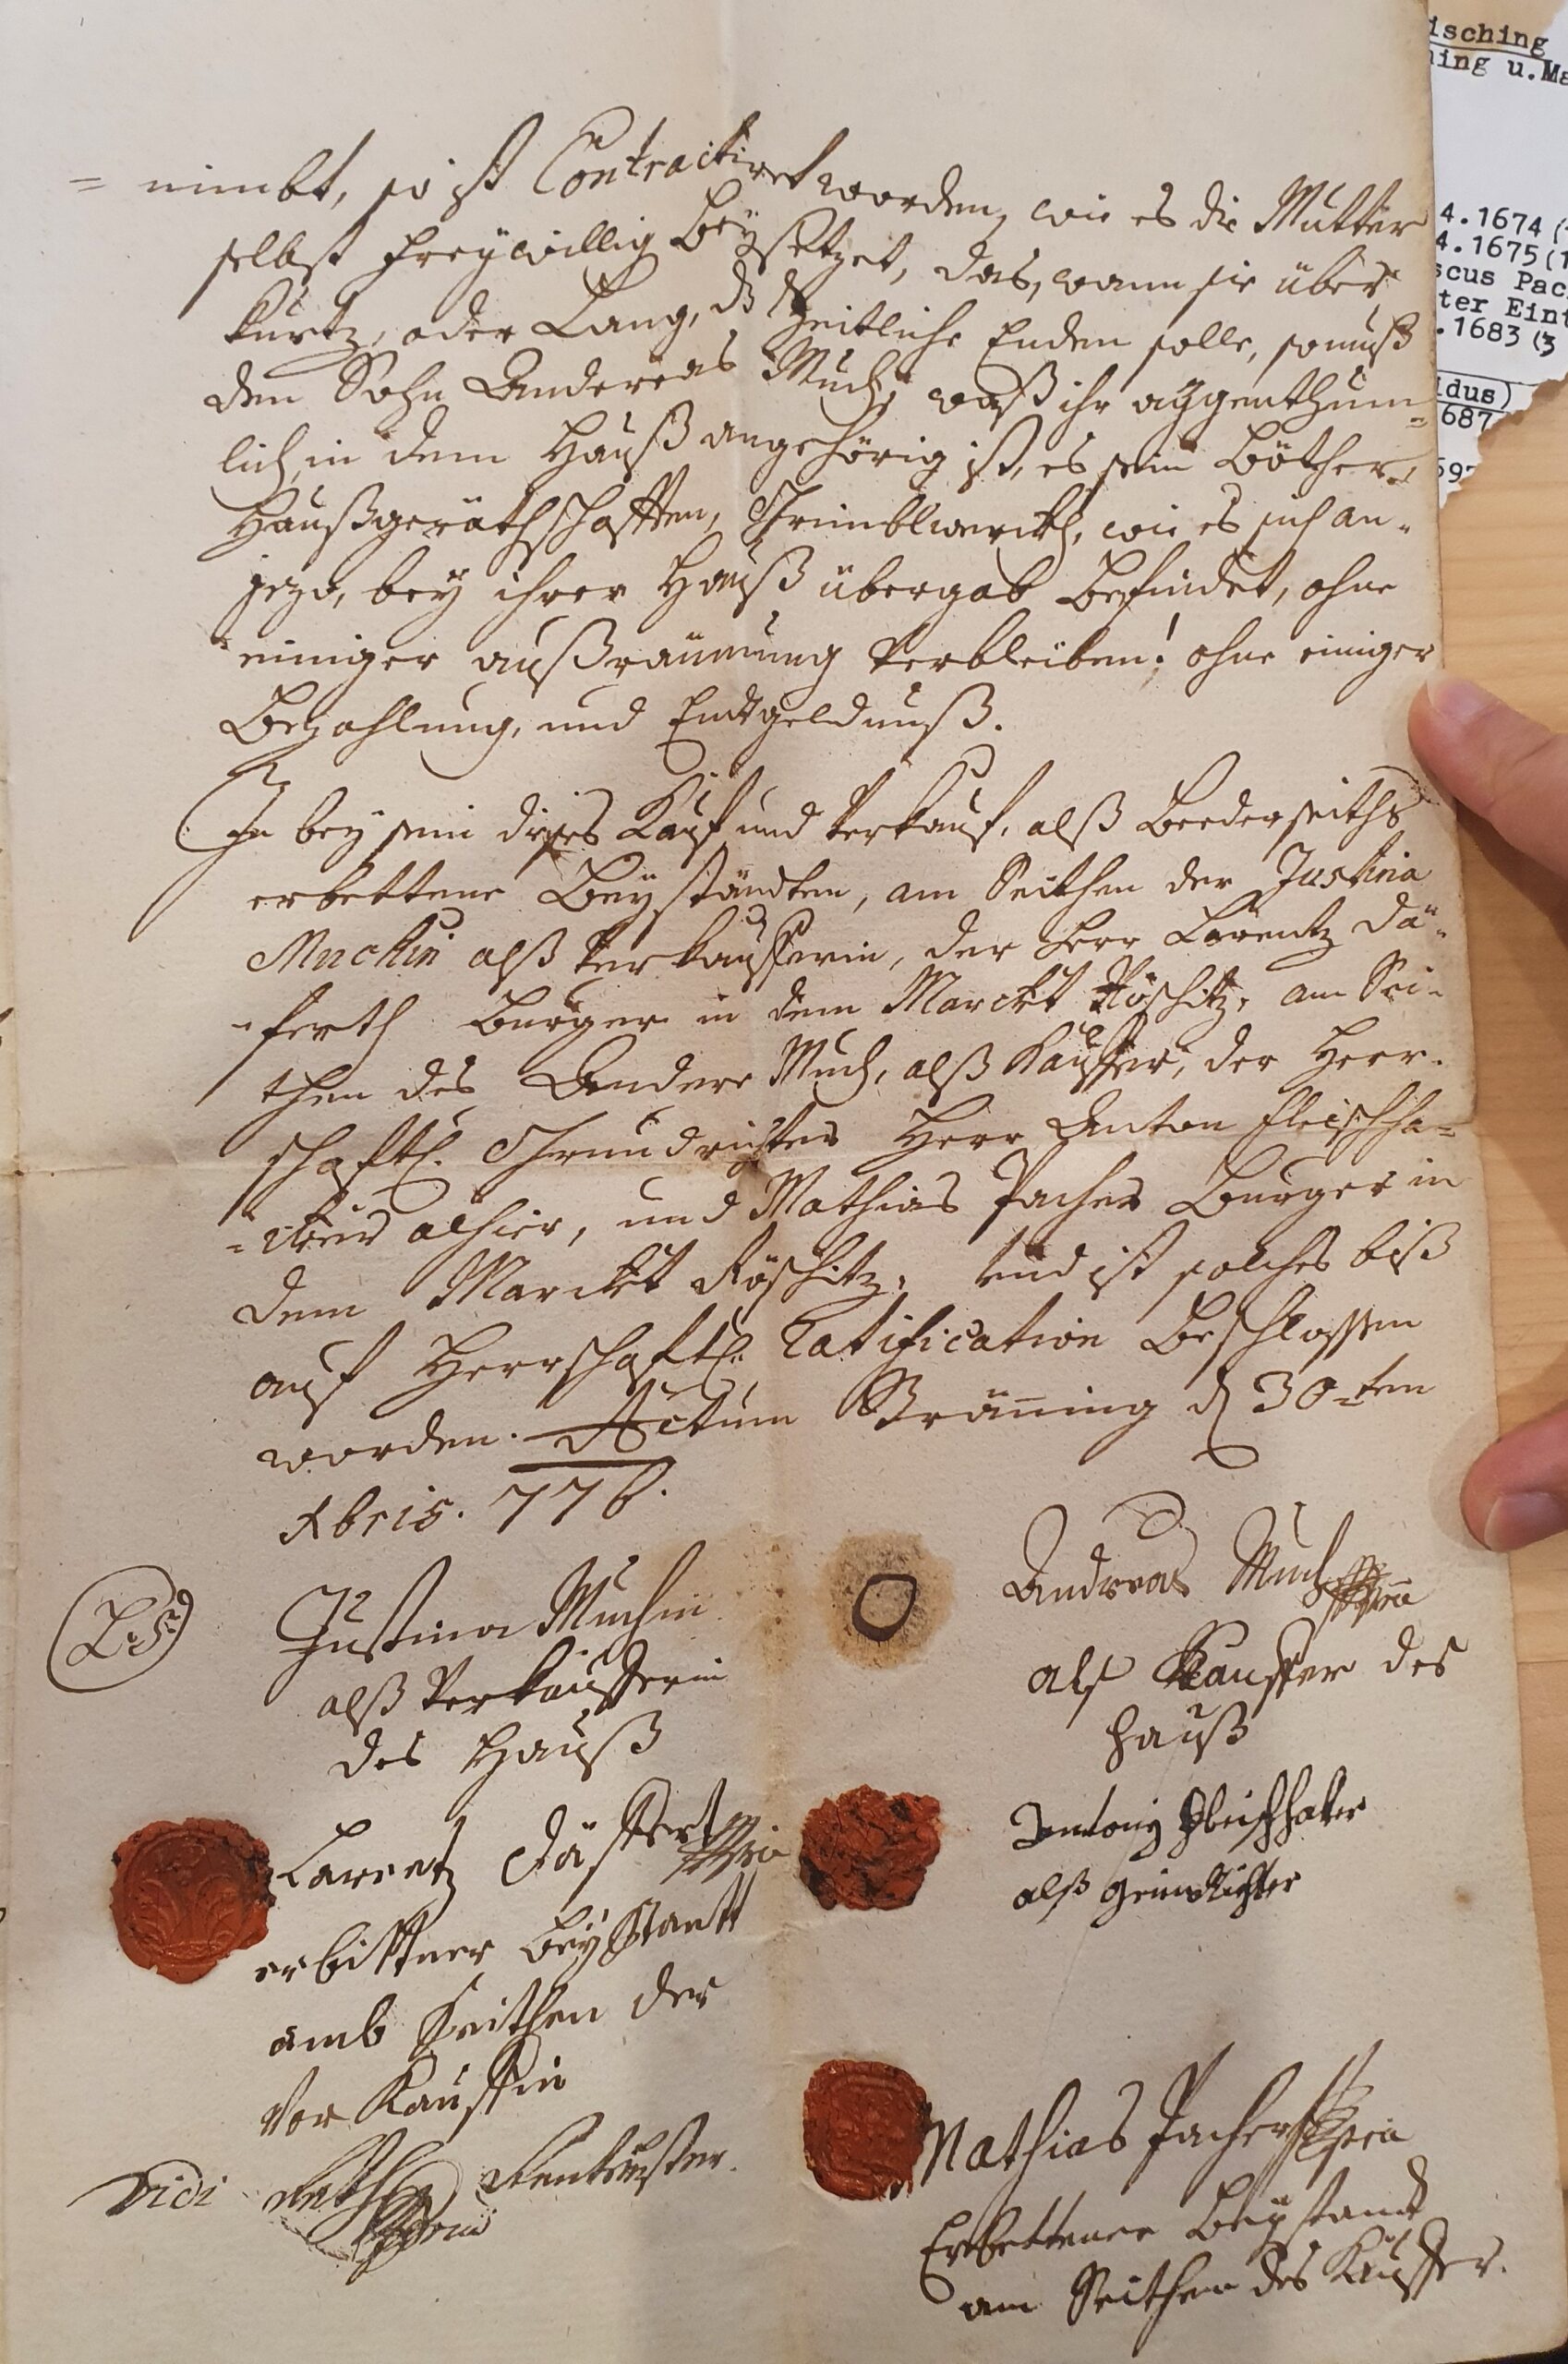 = nimbt, so ist Contractiret worden, wie es die Mutter
selbst freÿwillig beÿsetzet, das, wann sie über
kurtz, oder Lang, dß Zeitliche Enden solle, so muß
den Sohn Andereas Much, waß ihr aÿgenthum=
lich in dem Hauß angehörig ist, es seÿn Böther,
Haußgeräthschafften, Grimblwerckh, wie es sich an=
jezo, beÿ ihrer Hauß übergab befindet, ohne
einiger außraumung Verbleiben! ohne einiger
Bezahlung, und Endtgeldnuß.
In beÿ sein dises Kauf und Verkauf, alß Beederseiths
erbettene Beÿständten, am Seithen der Justina
Muchin alß Verkaufferin, der Herr Lorentz Dä=
=ferth Burger in dem Marckt Röschitz, am Sei=
then des Andere Much, alß Kauffer, der Herr=
schaftl. Grundrichter Herr Anton Fleischha=
=cker alhier, und Mathias Pacher Burger in
dem Marckt Röschitz, und ist solches biß
auf Herrschaftl. Ratification Beschlossen
worden. Actum Gräning d 30=ten
Xbris. 776.
L: S:
Justina Muchin
alß Verkaufferin
des Hauß
Andreas Much mpria
als Kauffer des
Hauß
Lorentz Däffert mpria
erbittner beÿstantt
amb Seithen der
Vor Kauffin
Antoni Fleischhaker
alß grundRichter
Vidi
Rentmeister.
Mathias Pacher mpria
Erbettener Beÿstand
am Seithen des Kauffer.
isching
ning u.Ma
4.1674 (
4.1675 (1
scus Pac
ter Eint
.1683 (3
idus)
687
697